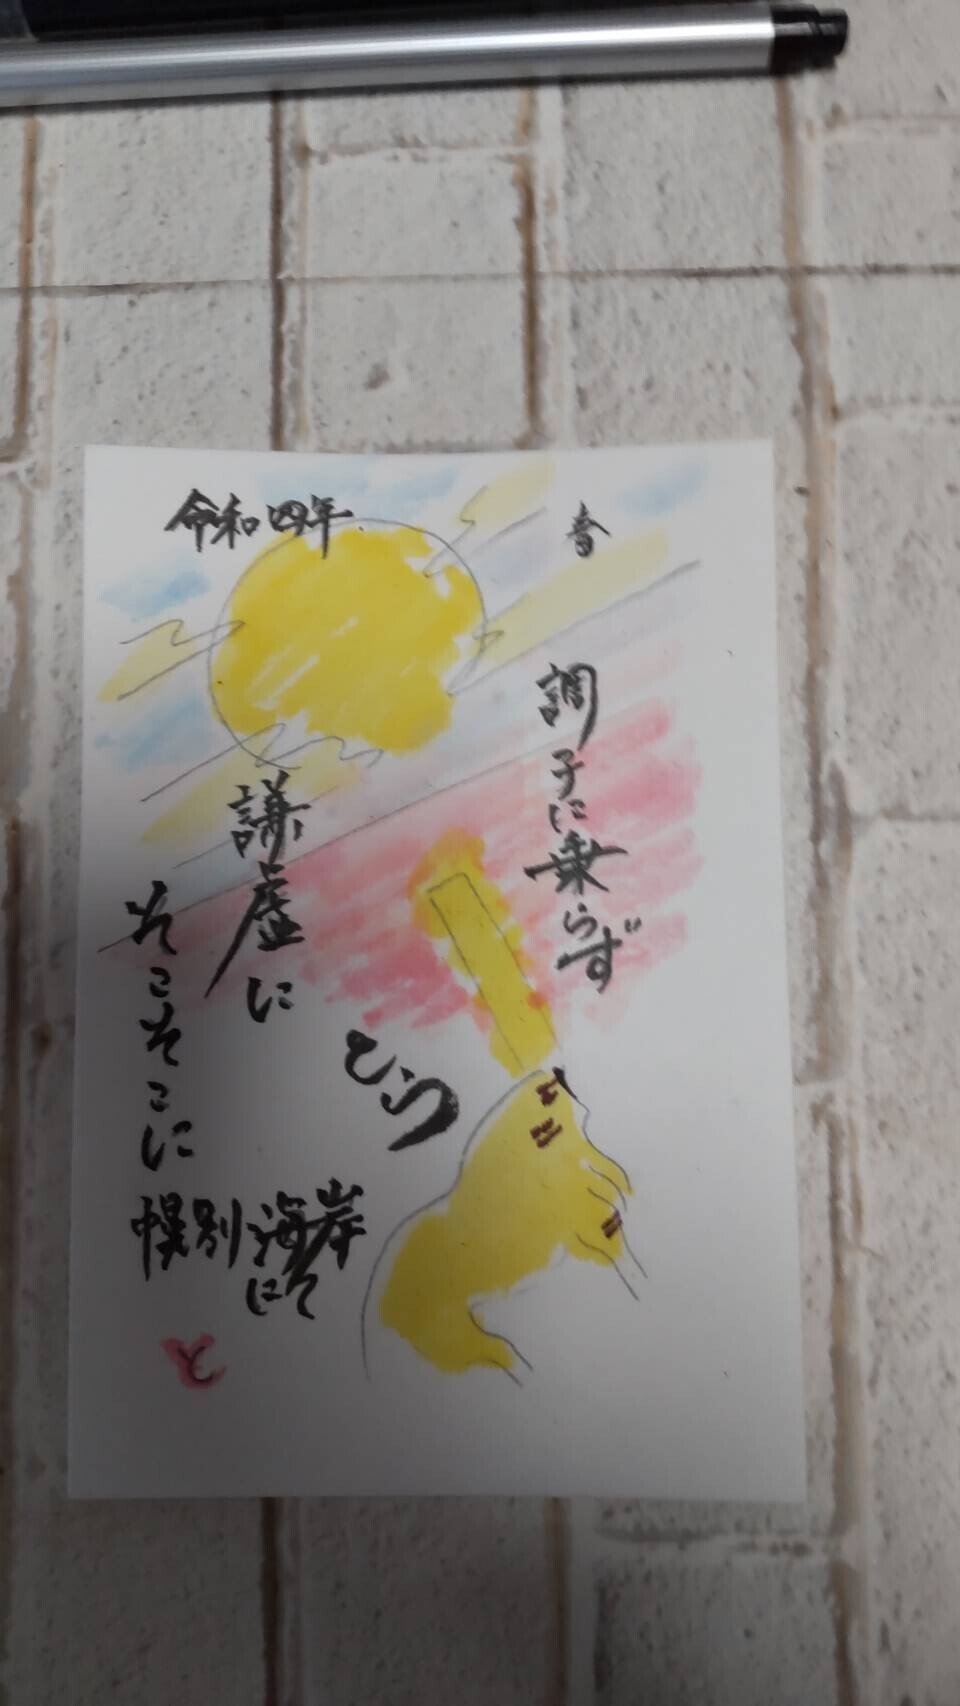 令和四年
春
調子に乗らず
謙虚に
そこそこに
とらつ
幌別海岸
にて
と